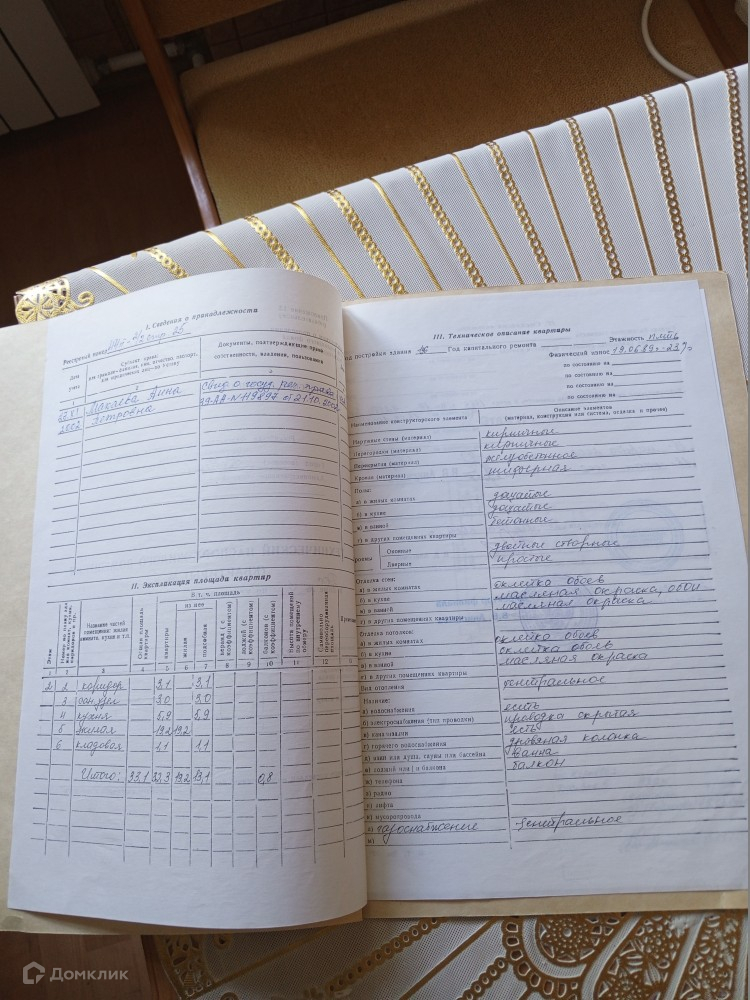 I. Сведения о принадлежности
Реестровый номер
Дата записи
Субъект права:
Документы, подтверждающие право собственности, владения, пользования
1
2
3
2002
Макаева Анна Петровна
Свид. о госуд. рег. права
II. Экспликация площади квартир
Этаж
Название частей помещения: жилая комната, кухня и т.п.
Общая площадь квартиры
В т. ч. площадь
из нее
квартиры
жилая
подсобная
веранд (с коэффициентом)
лоджий (с коэффициентом)
балконов (с коэффициентом)
Высота помещений по внутреннему обмеру
Самовольно переоборудованная площадь
1 2 3 4 5 6 7 8 9 10 11 12
2 2 коридор 3,1 3,1
3 сан.узел 3,0 3,0
4 кухня 5,9 5,9
5 жилая 19,2 19,2
6 кладовая 1,1 1,1
Итого: 33,1 32,3 19,2 13,1 0,8
III. Техническое описание квартиры
Год постройки здания Год капитального ремонта Этажность пять
Физический износ
по состоянию на
по состоянию на
по состоянию на
Наименование конструкторского элемента
Описание элементов
(материал, конструкция или система, отделка и прочее)
Наружные стены (материал) кирпичные
Перегородки (материал) кирпичные
Перекрытия (материал) железобетонное
Кровля (материал) шиферная
Полы:
а) в жилых комнатах дощатые
б) в кухне дощатые
в) в ванной бетонные
г) в других помещениях квартиры
Проемы
Оконные двойные створные
Дверные простые
Отделка стен:
а) в жилых комнатах оклейка обоев
б) в кухне масляная окраска, обои
в) в ванной масляная окраска
г) в других помещениях квартиры
Отделка потолков:
а) в жилых комнатах оклейка обоев
б) в кухне оклейка обоев
в) в ванной масляная окраска
г) в других помещениях квартиры
Вид отопления центральное
Наличие:
а) водоснабжения есть
б) электроснабжения (тип проводки) проводка скрытая
в) канализации есть
г) горячего водоснабжения дровяная колонка
д) ванн или душа, сауны или бассейна ванна
е) лоджий или балкона балкон
ж) телефона
з) радио
и) лифта
к) мусоропровода
л) газоснабжение центральное
м)
Домклик